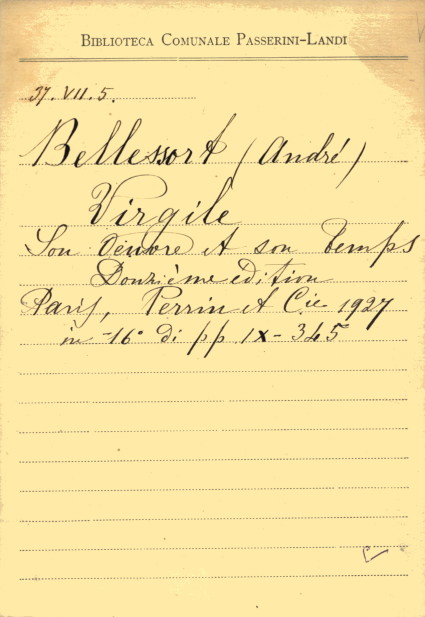 BIBLIOTECA COMUNALE PASSERINI-LANDI
37. VII. 5.
Bellessort (André)
Virgile
Son oeuvre et son temps
Douzième edition
Paris, Perrin et Cie 1927
in -16° di pp IX - 345